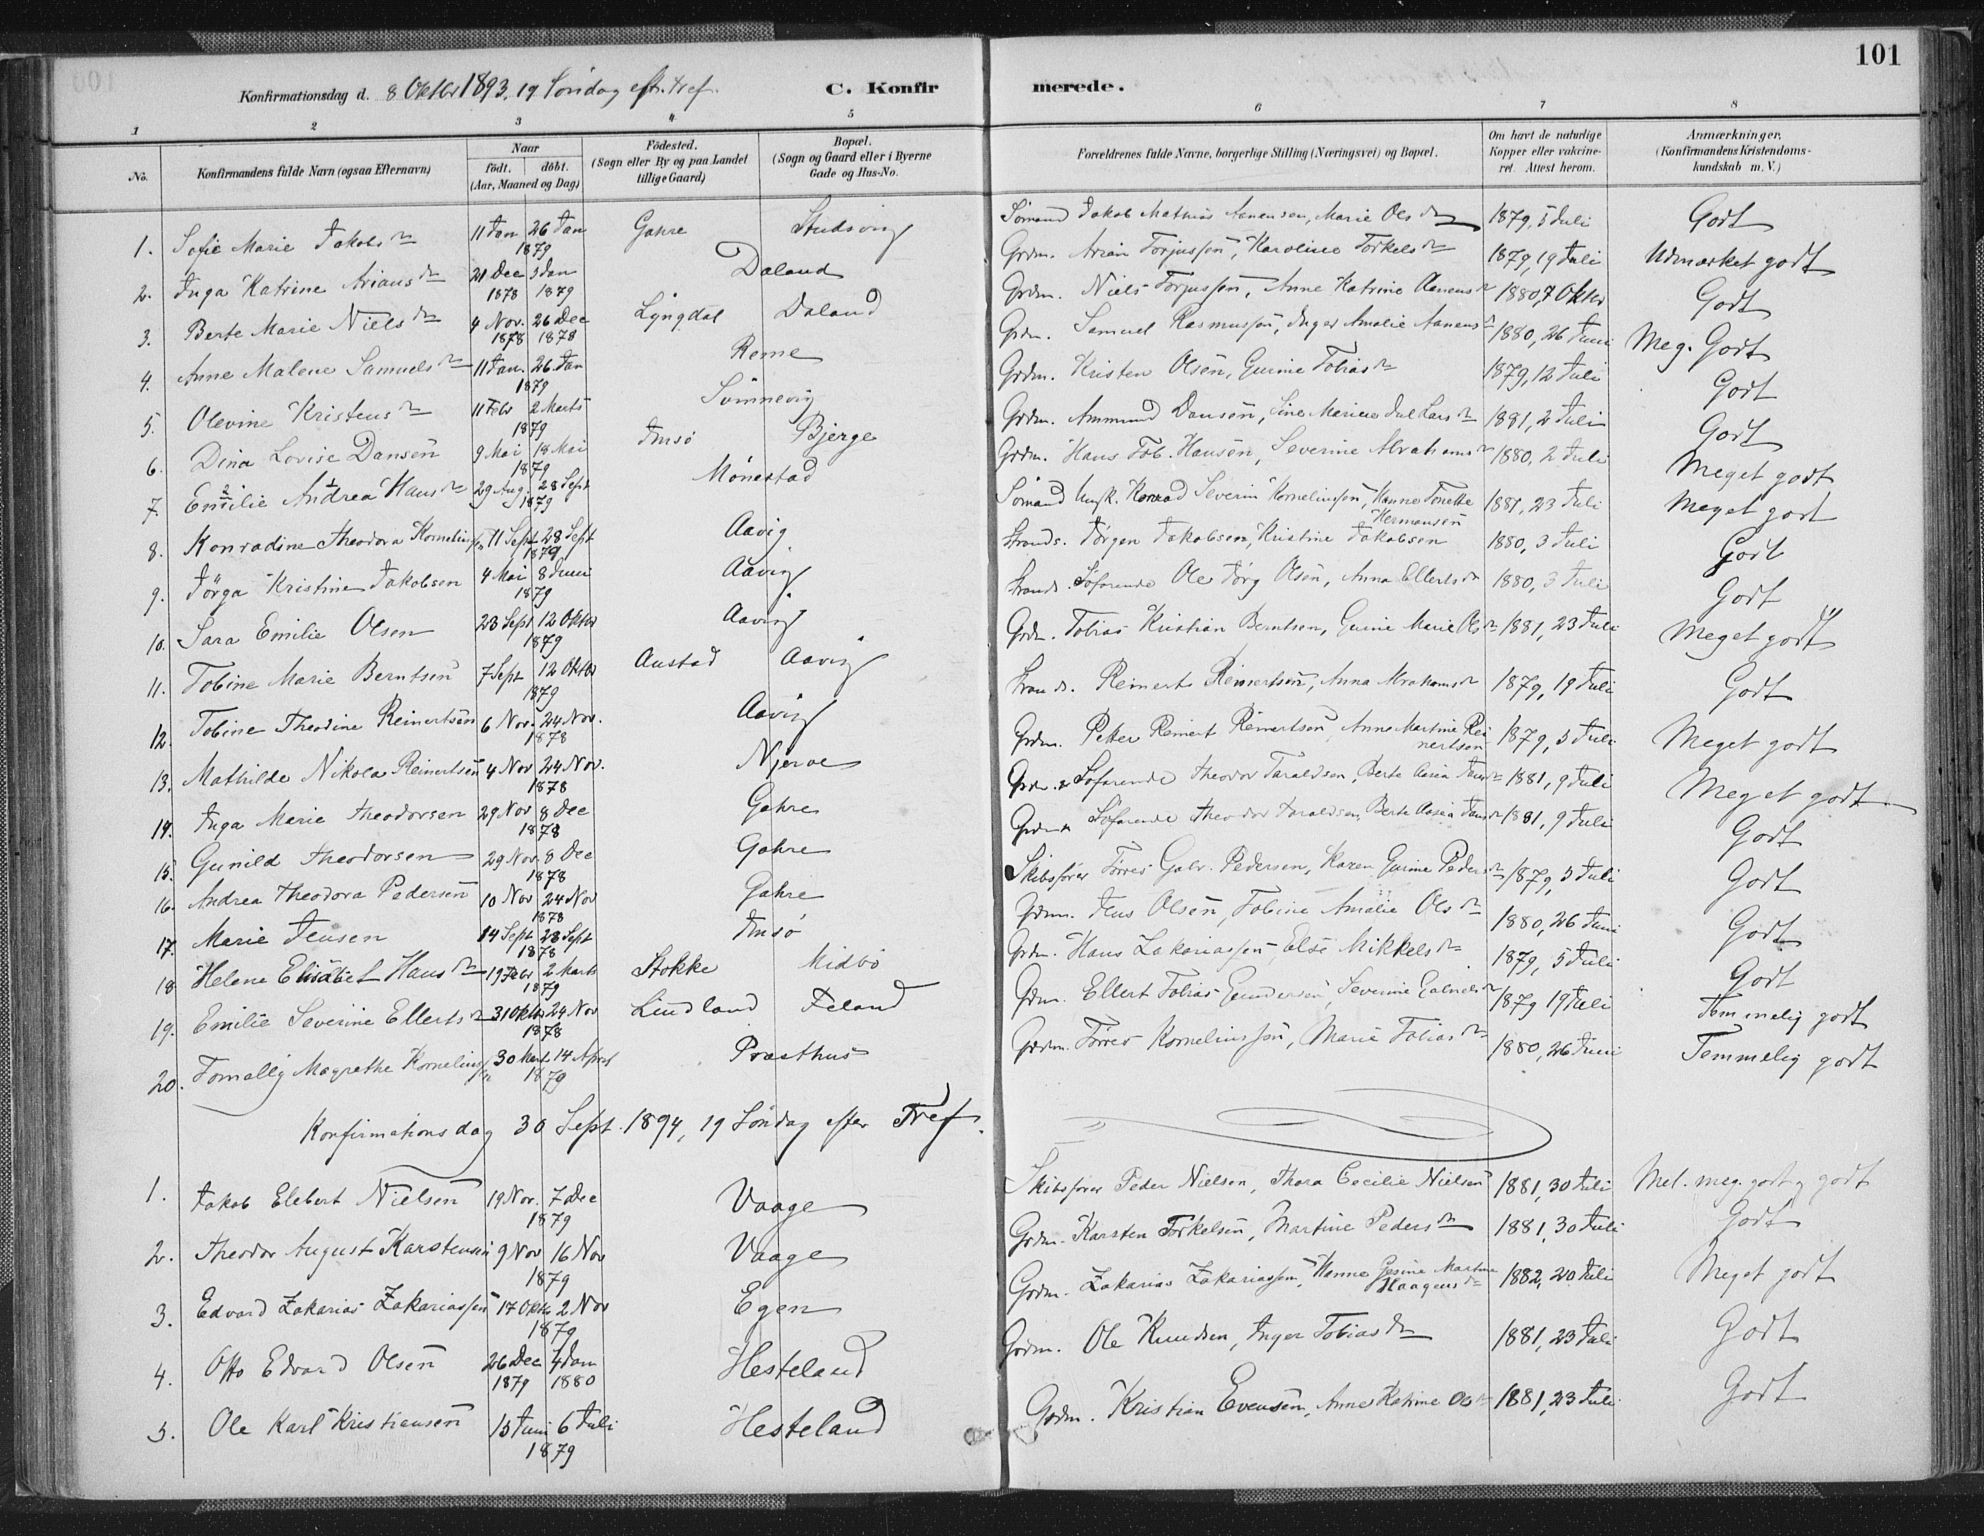 101
Konfirmationsdag d. 8 Oktbr 1893. 19 Søndag eft. Tref. C. Konfirmerede.
1 2 3 4 5 6 7 8
No. Konfirmandens fulde Navn (ogsaa Efternavn) Naar født. døbt. (Aar, Maaned og Dag) Fødested. (Sogn eller By og paa Landet tillige Gaard) Bopæl. (Sogn og Gaard eller i Byerne Gade og Hus-No. Forældrenes fulde Navne, borgerlige Stilling (Næringsvei) og Bopæl. Om havt de naturlige Kopper eller vakcineret. Attest herom. Anmærkninger, (Konfirmandens Kristendomskundskab m. V.)
1. Sofie Marie Jakobsdn 11 Jan 26 Jan 1879 Gahre Studsvig Sømand Jakob Mathias Aanensen, Marie Olsdn 1879, 5 Juli Godt
2. Inga Katrine Ariansdn 21 Dec 1878 3 Jan 1879 Daland Grdm. Arian Torjussøn, Karoline Torkelsdn 1879, 19 Juli Udmærket godt
3. Berte Marie Nielsdn 4 Nov. 1878 26 Dec 1878 Lyngdal Daland Grdm. Niels Torjussøn, Anne Katrine Aanensdn 1880, 7 Oktbr Godt
4. Anne Malene Samuelsdn 11 Jan. 26 Jan 1879 Rome Grdm. Samuel Rasmussøn, Inger Amalie Aanensdn 1880, 26 Juni Meg. Godt
5. Olevine Kristensdn 11 Febr 2 Marts 1879 Svinnevig Grdm. Kristen Olsen, Gurine Tobiasdn 1879, 12 Juli Godt
6. Dina Lovise Dansen 9 Mai 18 Mai 1879 Imsø Bjerge Grdm. Ammund Dansøn, Sine Marie Larsdn 1881, 2 Juli Godt
7. Emilie Andrea Hansdn 29 Aug. 28 Sept 1879 Mønestad Grdm. Hans Tob. Hansøn, Severine Abrahamsdn 1880, 2 Juli Meget godt
8. Konradine Theodora Korneliussen 11 Sept 28 Sept 1879 Aavig Sømand Konrad Severin Korneliussøn, Hanne Tonette Hermansen 1881, 23 Juli Meget godt
9. Jörga Kristine Jakobsen 4 Mai 8 Juni 1879 Aavig Strands. Jörgen Jakobsen, Kristine Jakobsen 1880, 3 Juli Godt
10. Sara Emilie Olsen 23 Sept 12 Oktbr 1879 Aavig Strands. Søfarende Ole Jörg Olsøn, Anna Ellertsdn 1880, 3 Juli Godt
11. Tobine Marie Berntsen 7 Sept 12 Oktbr 1879 Austad Aavig Grdm. Tobias Kristian Berntsen, Gurine Marie Olsdn 1881, 23 Juli Meget godt
12. Tobine Theodine Reinertsen 6 Nov. 24 Nov. 1878 Aavig Strands. Reinert Reinertsen, Anna Abrahamsdn 1879, 19 Juli Godt
13. Mathilde Nikola Reinertsen 4 Nov 24 Nov. 1878 Njerve Grdm. Peter Reinert Reinertsen, Anne Martine Reinertsen 1879, 5 Juli Meget godt
14. Inga Marie Theodorsen 29 Nov 8 Dec 1878 Gahre Grdm. & Søfarende Theodor Taraldsen, Berte Aasea Jensdn 1881, 9 Juli Meget godt
15. Gunild Theodorsen 29 Nov 8 Dec 1878 Gahre Grdm. & Søfarende Theodor Taraldsen, Berte Aasea Jensdn 1881, 9 Juli Godt
16. Andrea Theodora Pedersen 10 Nov 24 Nov 1878 Gahre Skibsfører Tørres Gabr. Pedersen, Karen Gurine Pedersdn 1879, 5 Juli Godt
17. Marie Jensen 14 Sept 28 Sept 1878 Imsø Grdm. Jens Olsen, Tobine Amalie Olsdn 1880, 26 Juni Godt
18. Helene Elisabet Hansdn 19 Febr 2 Marts 1879 Stokke Midbö Grdm. Hans Zakariassøn, Else Mikkelsdn 1879, 5 Juli Godt
19. Emilie Severine Ellertsdn 31 Oktbr 24 Nov 1878 Lindland Feland Grdm. Ellert Tobias Gundersen, Severine Gabrielsdn 1879 19 Juli Temmelig godt
20. Tomally Magrethe Korneliussen 30 Marts 14 April 1879 Præsthus Grdm. Tørres Korneliussøn, Marie Tobiasdn 1880, 26 Juni Temmelig godt
Konfirmationsdag 30 Sept. 1894, 19 Søndag efter Tref.
1. Jakob Elebert Nielsen 19 Nov. 7 Dec 1879 Vaage Skibsfører Peder Nielsen, Thora Cecilie Nielsen 1881, 30 Juli Mel. meg. godt og godt
2. Theodor August Karstensen 9 Nov 16 Nov 1879 Vaage Grdm. Karsten Torkelsen, Martine Pedersdn 1881, 30 Juli Godt
3. Edvard Zakarias Zakariassen 17 Oktbr 2 Nov 1879 Egen Grdm. Zakarias Zakariassen, Hanne Gesine Martine Haagensdn 1882, 20 Juli Meget godt
4. Otto Edvard Olsen 26 Dec 1879 4 Jan 1880 Hesteland Grdm. Ole Knudsen, Inger Tobiasdn 1881, 23 Juli Godt
5. Ole Karl Kristiansen 15 Juni 6 Juli 1879 Hesteland Grdm. Kristian Evensen, Anne Katrine Olsdn 1881, 23 Juli Godt